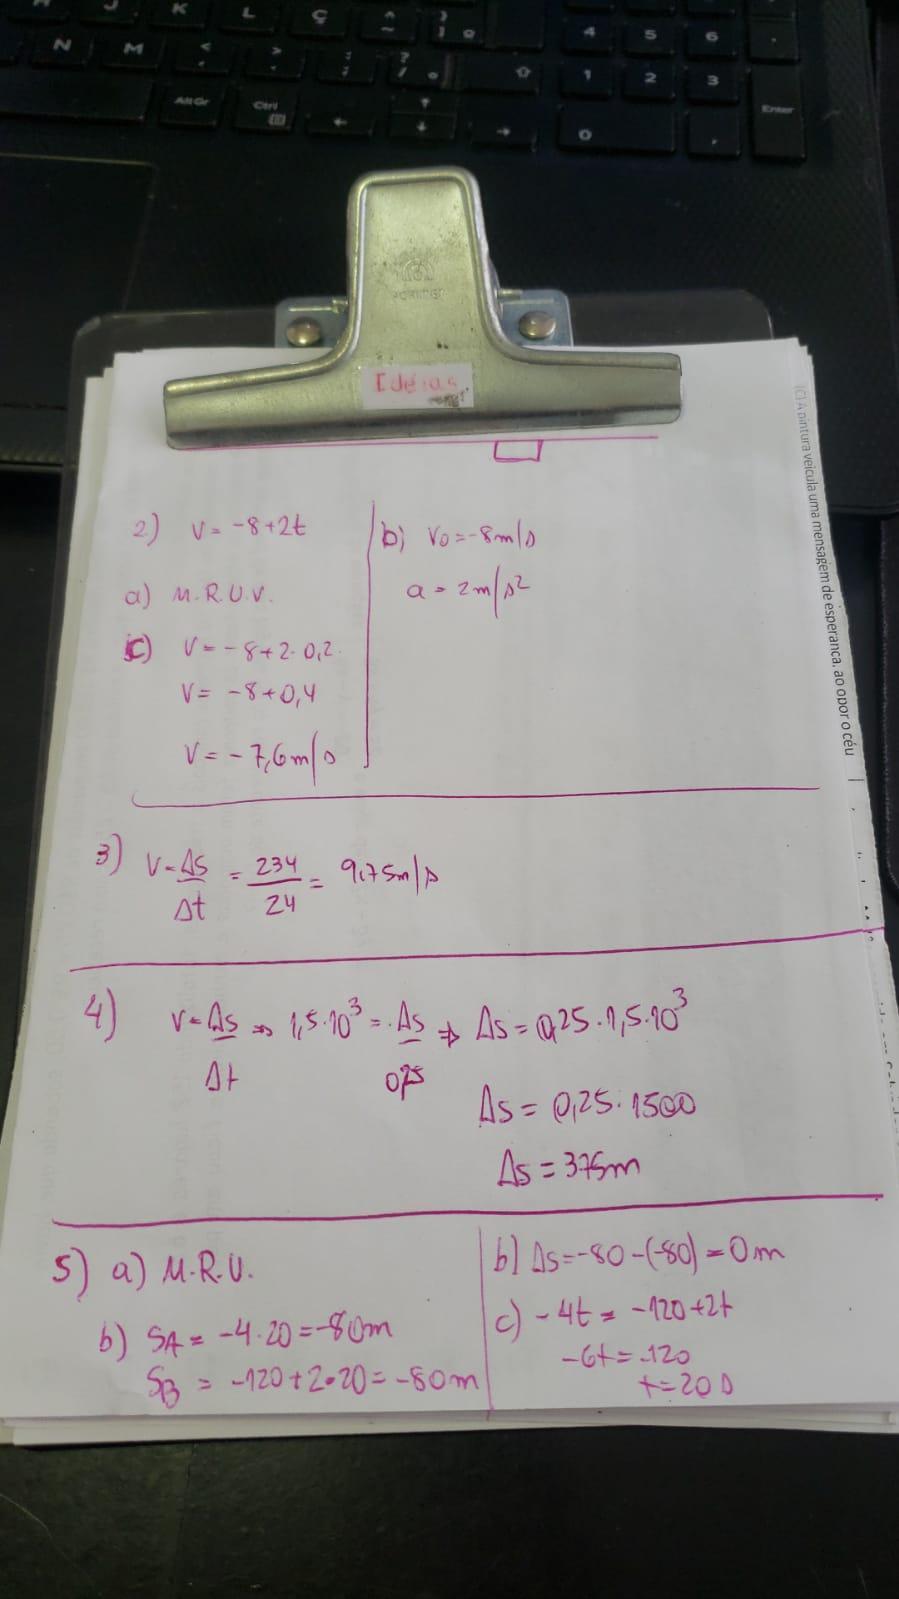 K
L
Ç
N
M
4
5
6
1
2
3
0
Alt Gr
Ctrl
Enter
Idéias
(C) A pintura veicula uma mensagem de esperança, ao opor o céu
2) V = -8+2t
a) M.R.U.V.
c) V = -8+2·0,2
V = -8+0,4
V = -7,6m/s
b) Vo = -8m/s
a = 2m/s²
3) V = Δs/Δt = 234/24 = 9,75m/s
4) V = Δs/Δt ⇒ 1,5·10³ = Δs/0,25 ⇒ Δs = 0,25·1,5·10³
Δs = 0,25·1500
Δs = 375m
5) a) M.R.U.
b) SA = -4·20 = -80m
SB = -120+2·20 = -80m
b) Δs = -80-(-80) = 0m
c) -4t = -120+2t
-6t = -120
t = 20s